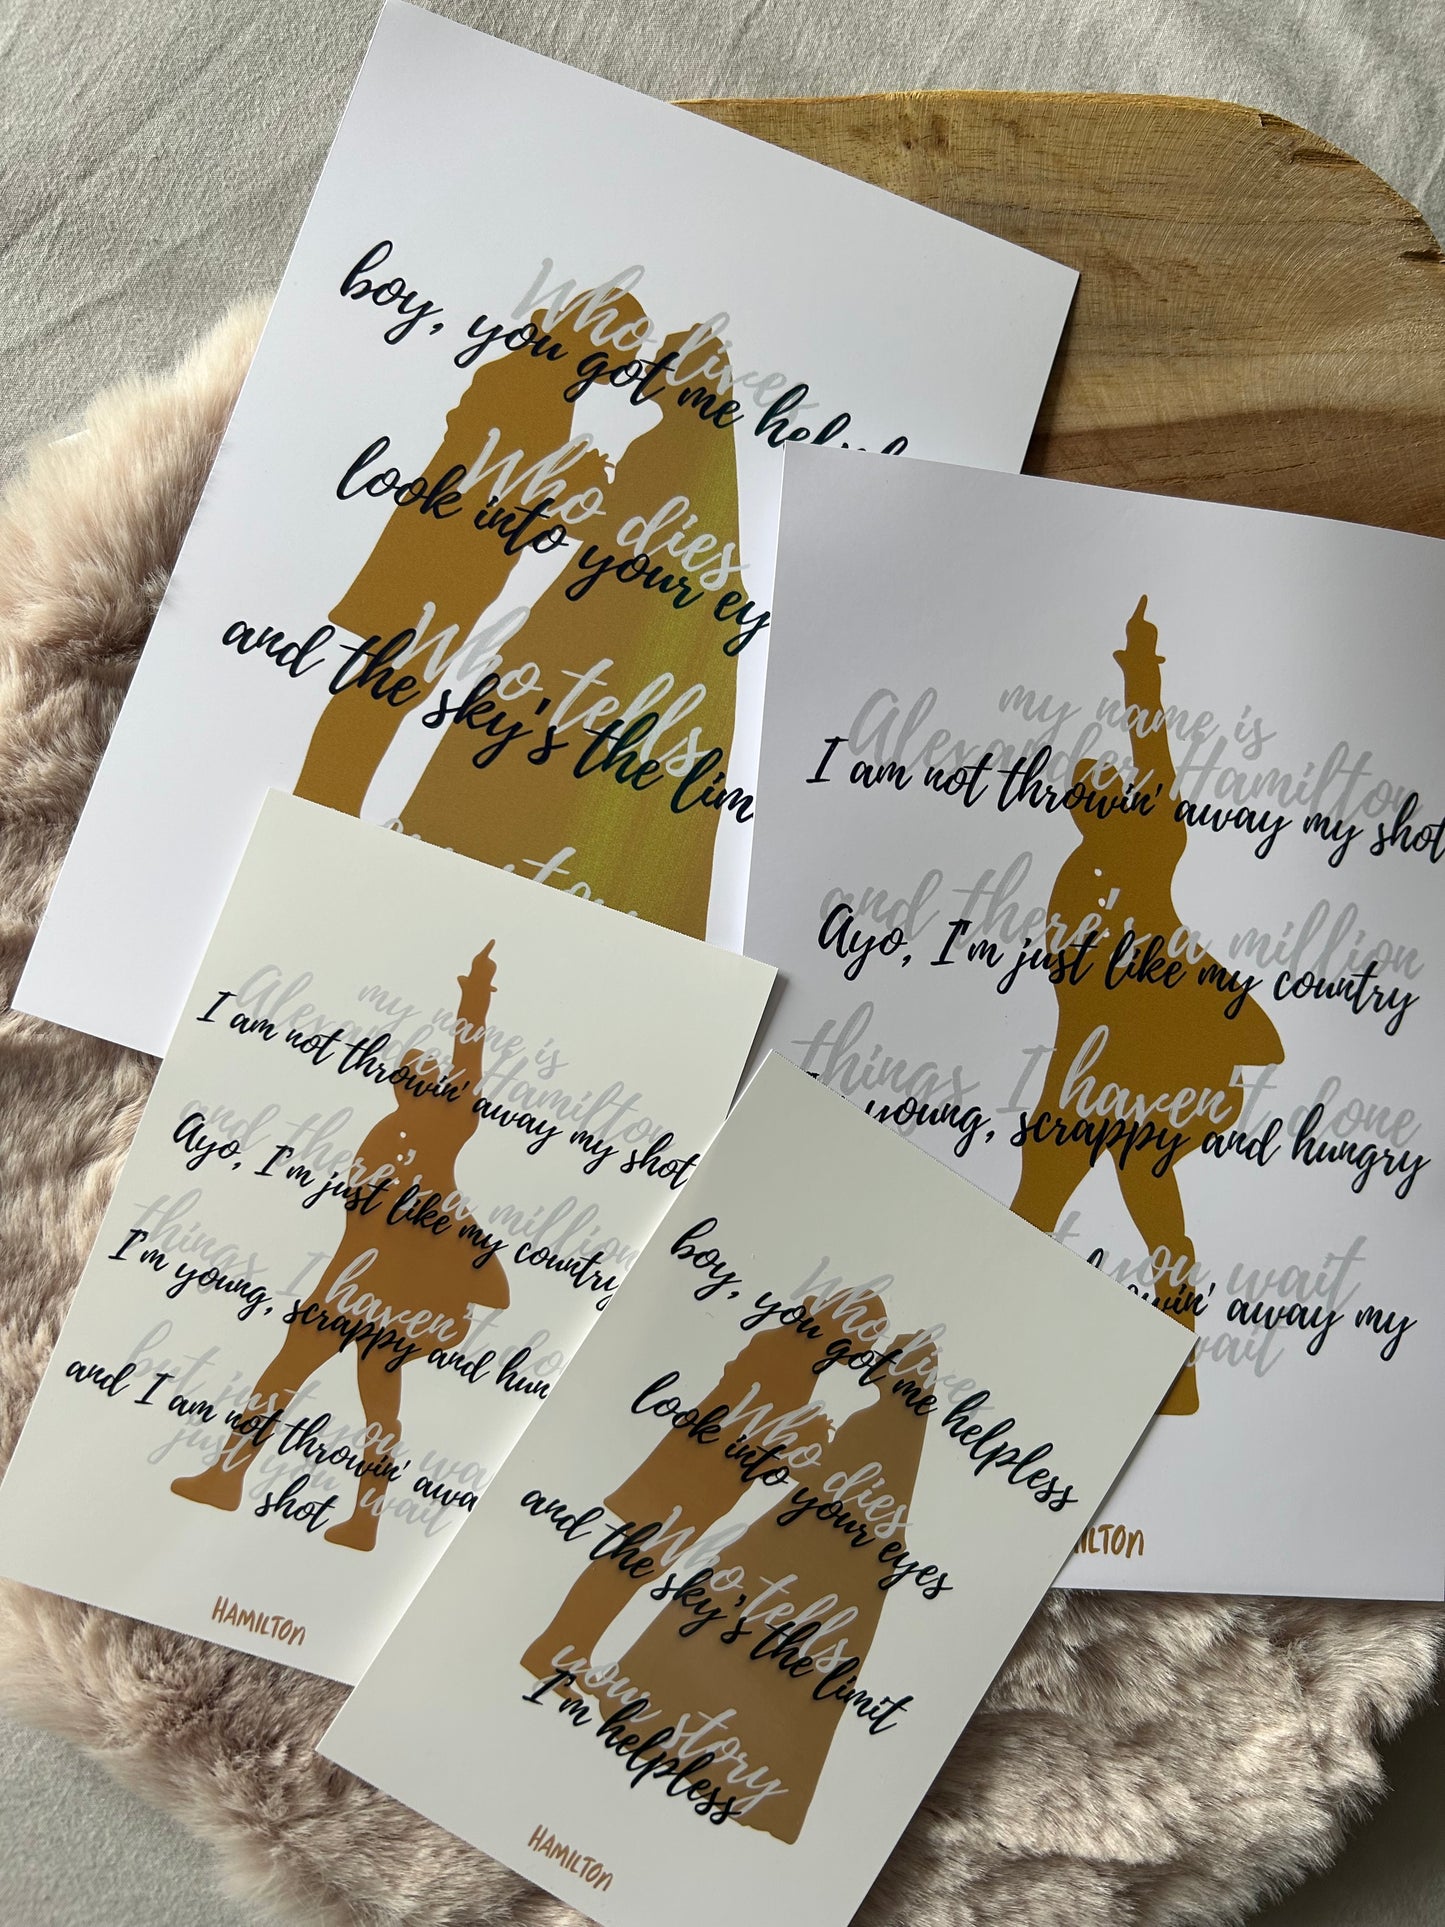 Who lives
boy, you got me
Who dies
look into your
Who tells
and the sky's the
my name is
Alexander Hamilton
I am not throwin' away my shot
and there's a million
Ayo, I'm just like my country
things I haven't done
young, scrappy and hungry
you wait
away my
wait
my name is
Alexander Hamilton
I am not throwin' away my shot
and there's a million
Ayo, I'm just like my country
things I haven't
I'm young, scrappy and
but just you
and I am not throwin'
just you wait
shot
HAMILTON
Who lives
boy, you got me helpless
Who dies
look into your eyes
Who tells
and the sky's the limit
your story
I'm helpless
HAMILTON